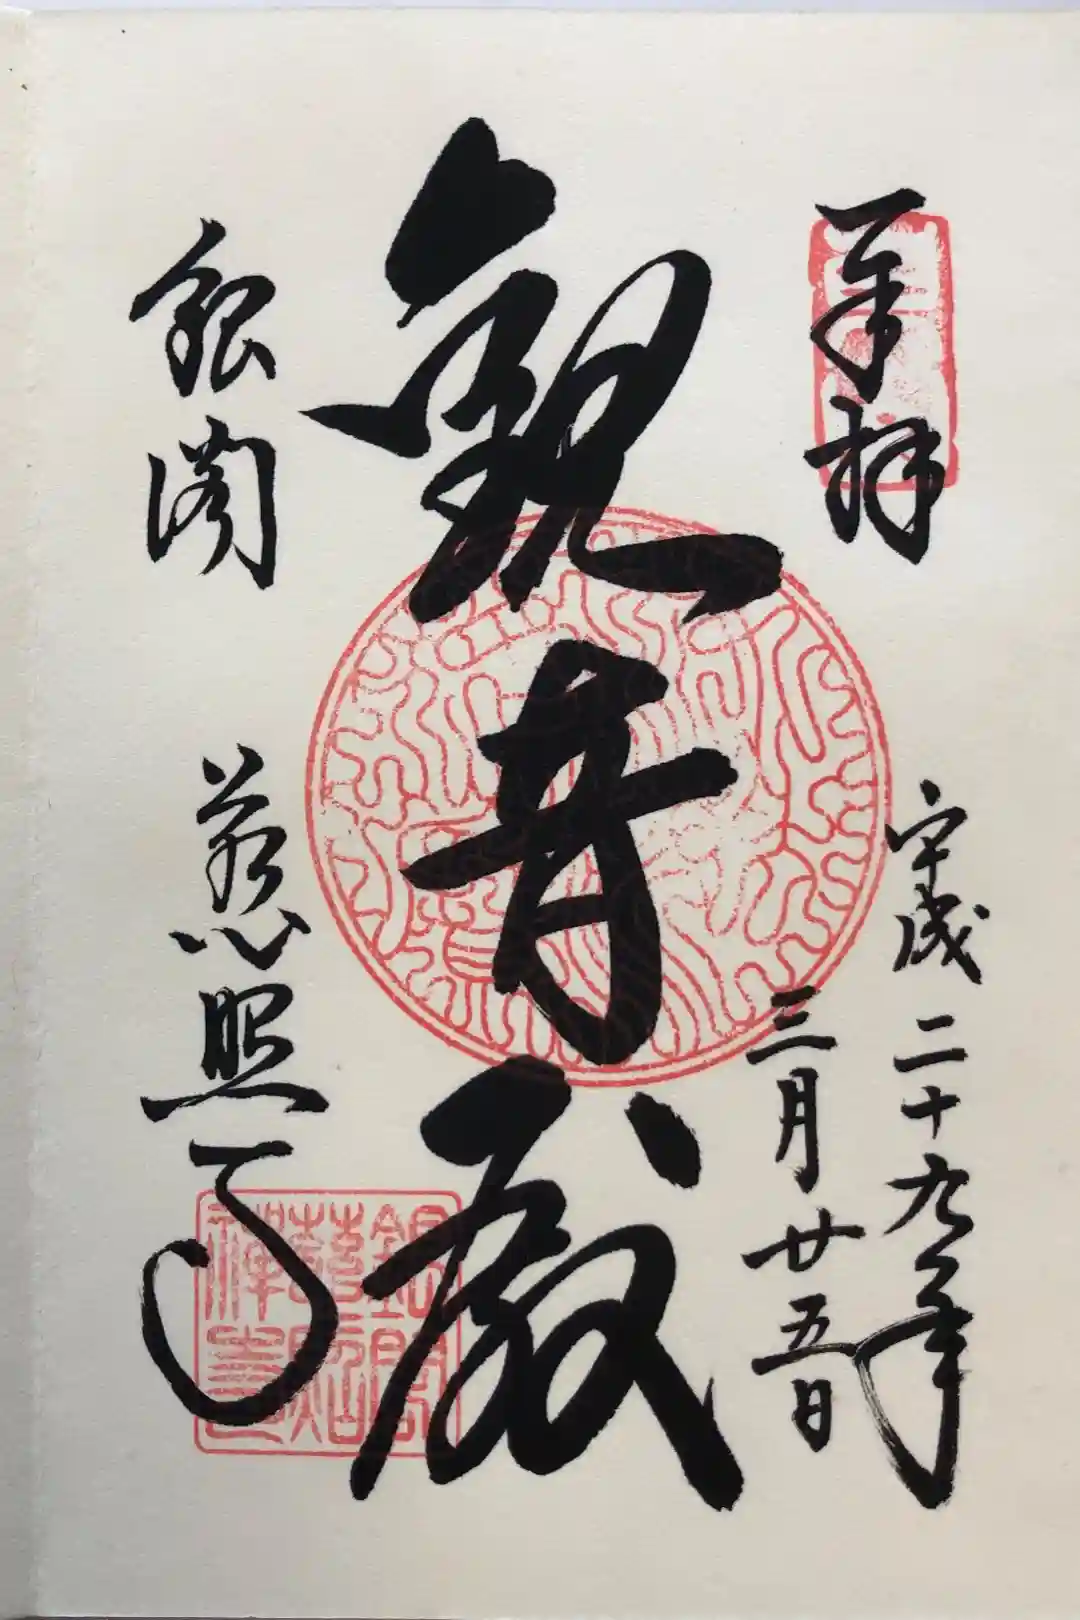 奉拝
平成二十九年
三月廿五日
観音殿
銀閣 慈照寺
銀閣
慈照
禅寺